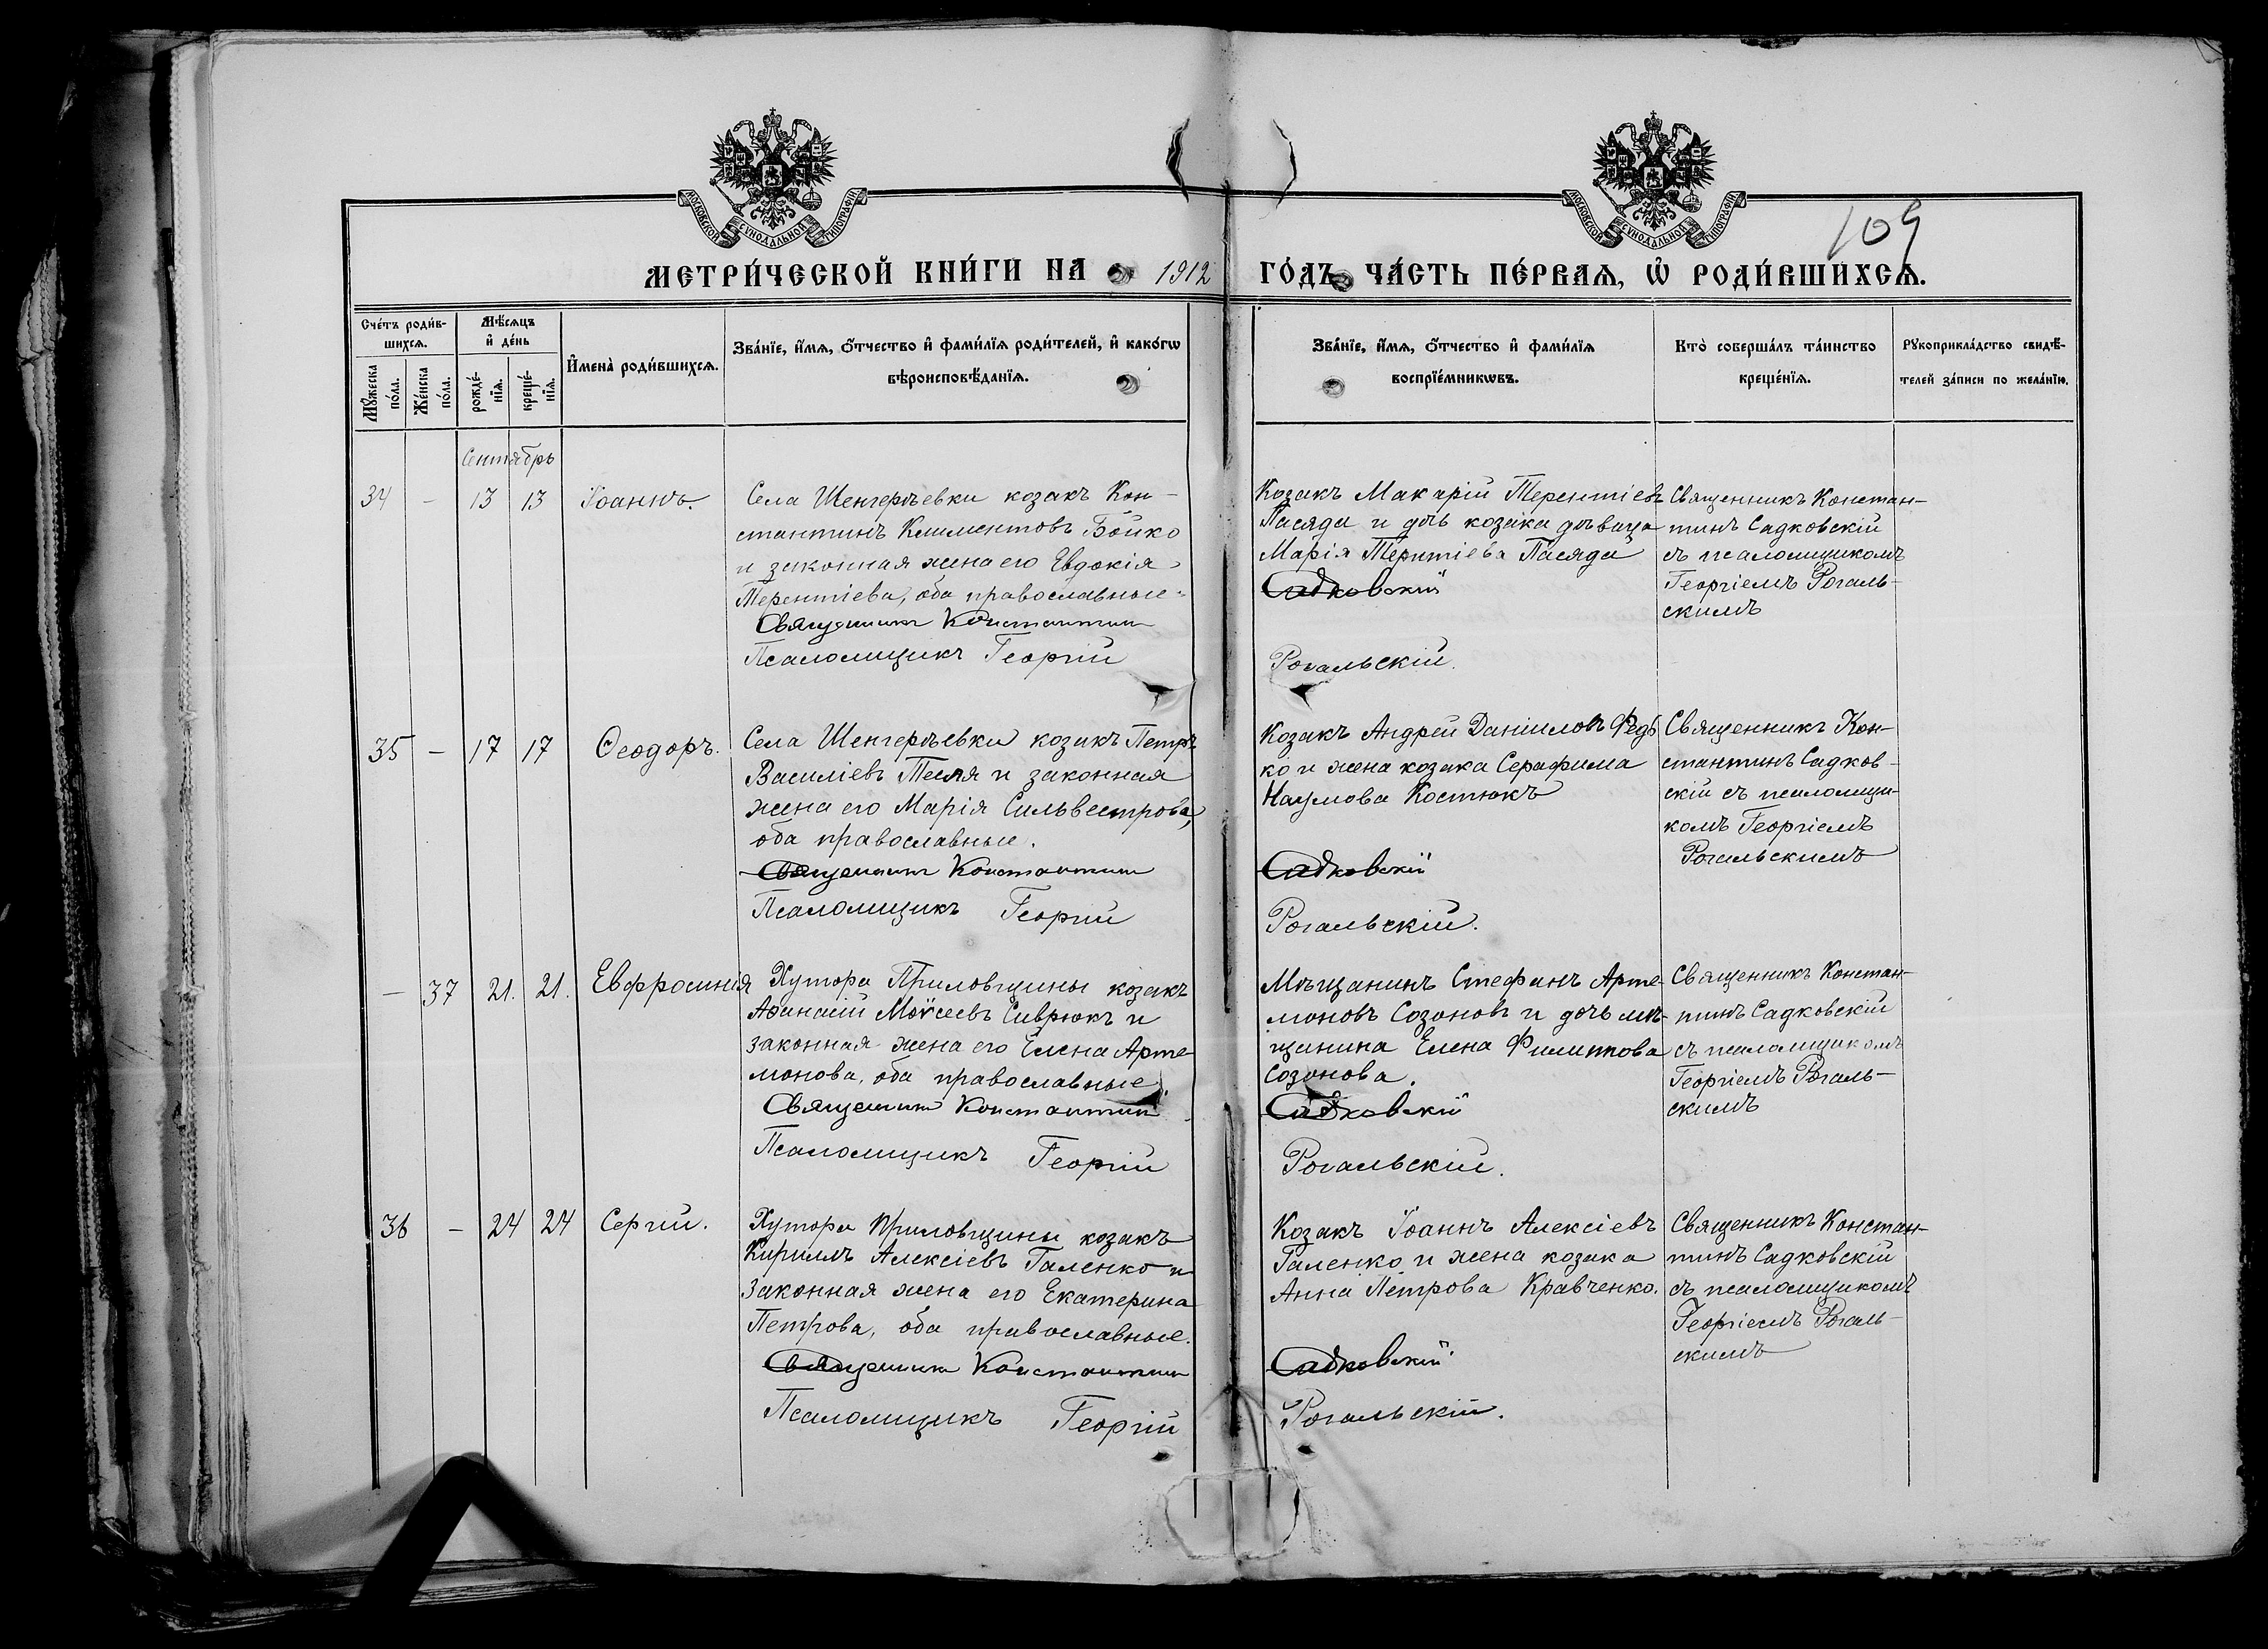 МОСКОВСКОЙ СѴНОДАЛЬНОЙ ТИПОГРАФІИ
МОСКОВСКОЙ СѴНОДАЛЬНОЙ ТИПОГРАФІИ
109
МЕТРИ́ЧЕСКОЙ КНИ́ГИ НА 1912 ГО́ДЪ, ЧА́СТЬ ПЕ́РВАѦ, Ѡ҆ РОДИ́ВШИХСѦ.
Сче́тъ роди́в-
шихсѧ.
Мꙋ́жеска по́ла.
Же́нска по́ла.
Мѣ́сѧцъ
и҆ де́нь
рожде́-
нїѧ.
креще́-
нїѧ.
И҆мена̀ роди́вшихсѧ.
Зва́нїе, и҆́мѧ, ѻ҆́тчество и҆ фами́лїѧ роди́телей, и҆ како́гѡ
вѣроисповѣ́данїѧ.
Зва́нїе, и҆́мѧ, ѻ҆́тчество и҆ фами́лїѧ
воспрїе́мникѡвъ.
Кто̀ соверша́лъ та́инство
креще́нїѧ.
Рꙋкоприкла́дство свидѣ́-
телей за́писи по жела́нїю.
Сентябрь
34 – 13 13 Іоаннъ.
Села Шенгерѣевки козакъ Кон-
стантинъ Климентовъ Бойко
и законная жена его Евдокія
Терентіева, оба православные.
Священникъ Константин
Псаломщикъ Георгій
Козакъ Макарій Терентіевъ
Пасяда и дочь козака дѣвица
Марія Терентіева Пасяда
Садковскій
Рогальскій.
Священникъ Констан-
тинъ Садковскій
съ псаломщикомъ
Георгіемъ Рогаль-
скимъ
35 – 17 17 Ѳеодоръ.
Села Шенгерѣевки козакъ Петръ
Василіевъ Тесля и законная
жена его Марія Сильвестрова,
оба православные.
Священникъ Константин
Псаломщикъ Георгій
Козакъ Андрей Даниловъ Федь
ко и жена козака Серафима
Наумова Костюкъ
Садковскій
Рогальскій.
Священникъ Кон-
стантинъ Садков-
скій съ псаломщи-
комъ Георгіемъ
Рогальскимъ
– 37 21. 21. Евфросинія
Хутора Приловщины козакъ
Аѳанасій Моѵсеевъ Сиврюкъ и
законная жена его Елена Арте-
монова, оба православные.
Священникъ Константин
Псаломщикъ Георгій
Мѣщанинъ Стефанъ Арте-
моновъ Созоновъ и дочь мѣ-
щанина Елена Филиппова
Созонова.
Садковскій
Рогальскій.
Священникъ Констан-
тинъ Садковскій
съ псаломщикомъ
Георгіемъ Рогаль-
скимъ
36 – 24 24 Сергій.
Хутора Приловщины козакъ
Кириллъ Алексіевъ Галенко и
законная жена его Екатерина
Петрова, оба православные.
Священникъ Константин
Псаломщикъ Георгій
Козакъ Іоаннъ Алексіевъ
Галенко и жена козака
Анна Петрова Кравченко.
Садковскій
Рогальскій.
Священникъ Констан-
тинъ Садковскій
съ псаломщикомъ
Георгіемъ Рогаль-
скимъ